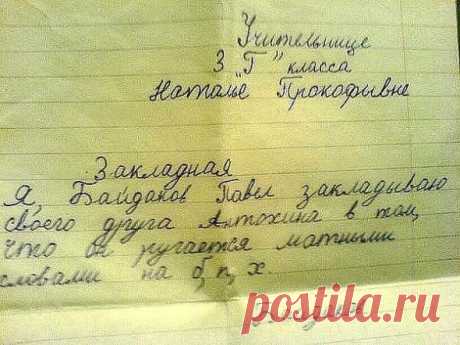 Учительнице
3 "Г" класса
Наталье Прокофьвне
Закладная
Я, Байдаков Павел закладываю
своего друга Антохина в том,
что он ругается матными
словами на б, п, х.
postila.ru